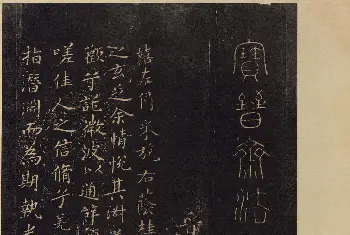 寶晉齋法
蔭左倚采旄右蔭桂
之玄芝余情悅其淑美
歡兮託微波以通辭
嗟佳人之信脩兮羌
指潛淵而為期執